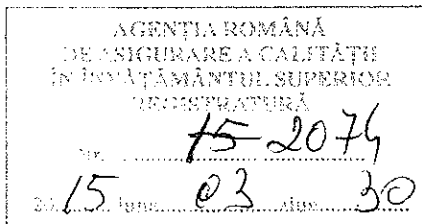 AGENȚIA ROMÂNĂ
DE ASIGURARE A CALITĂȚII
ÎN ÎNVĂȚĂMÂNTUL SUPERIOR
REGISTRATURĂ
Nr. 15-2074
2015 luna 03 ziua 30